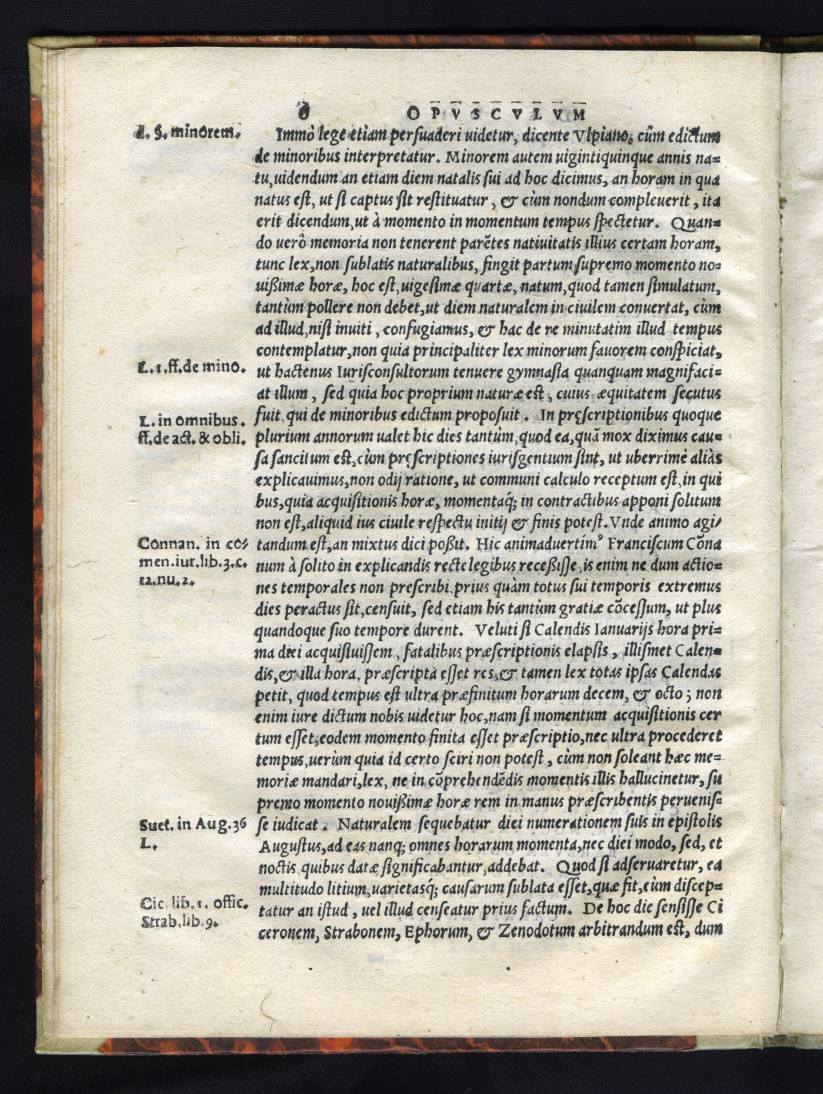 6 OPVSCVLVM
L. §. minorem. Immò lege etiam persuaderi uidetur, dicente Vlpiano, cùm edictum
de minoribus interpretatur. Minorem autem uigintiquinque annis na=
tu, uidendum an etiam diem natalis sui ad hoc dicimus, an horam in qua
natus est, ut si captus sit restituatur, & cùm nondum compleuerit, ita
erit dicendum, ut à momento in momentum tempus spectetur. Quan=
do uerò memoria non tenerent parẽtes natiuitatis illius certam horam,
tunc lex, non sublatis naturalibus, fingit partum supremo momento no=
uißimæ horæ, hoc est, uigesimæ quartæ, natum, quod tamen simulatum,
tantùm pollere non debet, ut diem naturalem in ciuilem conuertat, cùm
ad illud, nisi inuiti, confugiamus, & hac de re minutatim illud tempus
contemplatur, non quia principaliter lex minorum fauorem conspiciat,
L. 1. ff. de mino. ut hactenus Iurisconsultorum tenuere gymnasia quanquam magnifaci=
at illum, sed quia hoc proprium naturæ est, cuius æquitatem secutus
L. in omnibus. fuit, qui de minoribus edictum proposuit. In pręscriptionibus quoque
ff. de act. & obli. plurium annorum ualet hic dies tantùm, quod ea, quã mox diximus cau=
sa sancitum est, cùm pręscriptiones iurisgentium sint, ut uberrimè aliàs
explicauimus, non odij ratione, ut communi calculo receptum est, in qui
bus, quia acquisitionis horæ, momentaq; in contractibus apponi solitum
non est, aliquid ius ciuile respectu initij & finis potest. Vnde animo agi/
Connan. in co/ tandum est, an mixtus dici poßit. Hic animaduertimꝰ Franciscum Cõna
men. iur. lib. 3. c. num à solito in explicandis recte legibus recesisse, is enim ne dum actio=
12. nu. 2. nes temporales non prescribi prius quàm totus sui temporis extremus
dies peractus sit, censuit, sed etiam his tantùm gratiæ cõcessum, ut plus
quandoque suo tempore durent. Veluti si Calendis Ianuarijs hora pri=
ma diei acquisiuissem, fatalibus præscriptionis elapsis, illismet Calen=
dis, & illa hora, præscripta esset res, & tamen lex totas ipsas Calendas
petit, quod tempus est ultra præfinitum horarum decem, & octo; non
enim iure dictum nobis uidetur hoc, nam si momentum acquisitionis cer
tum esset, eodem momento finita esset præscriptio, nec ultra procederet
tempus, uerùm quia id certo sciri non potest, cùm non soleant hæc me=
moriæ mandari, lex, ne in cõprehendẽdis momentis illis hallucinetur, su
premo momento nouißimæ horæ rem in manus præscribentis peruenis=
Suet. in Aug. 36 se iudicat. Naturalem sequebatur diei numerationem suis in epistolis
L. Augustus, ad eas nanq; omnes horarum momenta, nec diei modo, sed, et
noctis quibus datæ significabantur, addebat. Quod si adseruaretur, ea
multitudo litium, uarietasq; causarum sublata esset, quæ fit, cùm discep=
Cic. lib. 1. offic. tatur an istud, uel illud censeatur prius factum. De hoc die sensisse Ci
Strab. lib. 9. ceronem, Strabonem, Ephorum, & Zenodotum arbitrandum est, dum